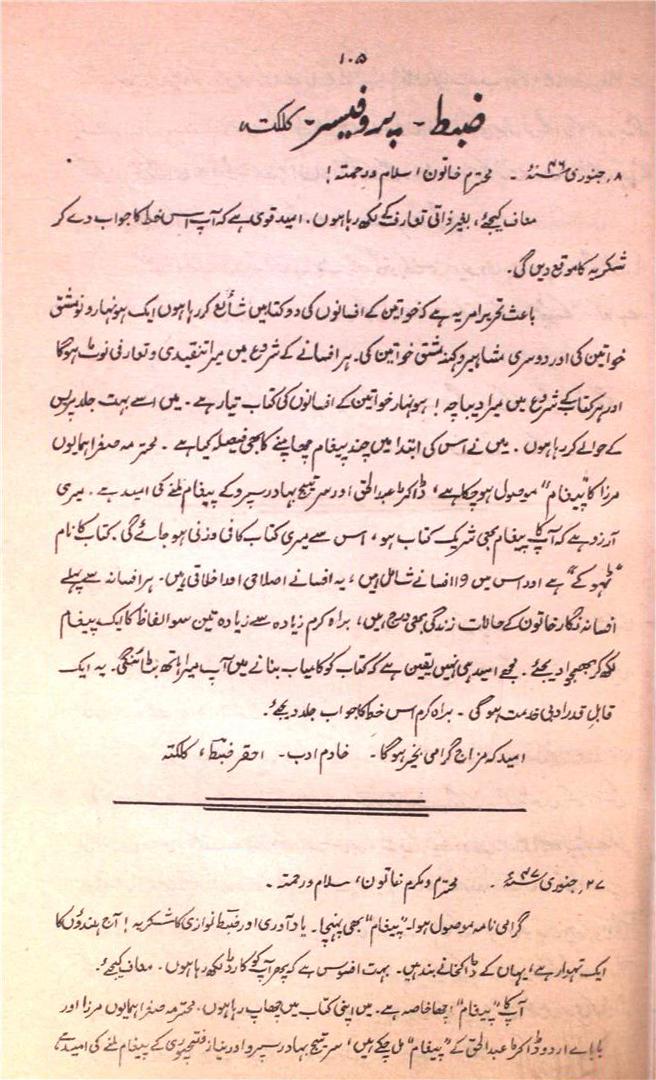 ۱۰۵
ضبط۔ پروفیسر۔ کلکتہ
۸؍ جنوری ۴۶ء ۔ محترم خاتون! سلام ورحمتہ!
معاف کیجئے، بغیر ذاتی تعارف کے لکھ رہا ہوں۔ امید قوی ہے کہ آپ اس خط کا جواب دے کر
شکریہ کا موقع دیں گی۔
باعث تحریر امر یہ ہے کہ خواتین کے افسانوں کی دو کتابیں شائع کر رہا ہوں ایک ہونہار و نومشق
خواتین کی اور دوسری مشاہیر و کہنہ مشق خواتین کی۔ ہر افسانے کے شروع میں میرا تنقیدی و تعارفی نوٹ ہوگا
اور ہر کتاب کے شروع میں میرا دیباچہ! ہونہار خواتین کے افسانوں کی کتاب تیار ہے۔ میں اسے بہت جلد پریس
کے حوالے کر رہا ہوں۔ میں نے اس کی ابتدا میں چند پیغام چھاپنے کا بھی فیصلہ کیا ہے۔ محترمہ صغرا ہمایوں
مرزا کا "پیغام" موصول ہو چکا ہے، ڈاکٹر عبدالحق اور سر تیج بہادر سپرو کے پیغام ملنے کی امید ہے۔ میری
آرزو ہے کہ آپ کا پیغام بھی شریک کتاب ہو، اس سے میری کتاب کافی وزنی ہو جائے گی۔ کتاب کا نام
"ٹہوکے" ہے اور اس میں ۱۹ افسانے شامل ہیں، یہ افسانے اصلاحی اور اخلاقی ہیں۔ ہر افسانہ سے پہلے
افسانہ نگار خاتون کے حالات زندگی بھی درج ہیں، براہ کرم زیادہ سے زیادہ تین سو الفاظ کا ایک پیغام
لکھ کر بھجوا دیجئے۔ مجھے امید ہی نہیں یقین ہے کہ کتاب کو کامیاب بنانے میں آپ میرا ہاتھ بٹائنگی۔ یہ ایک
قابل قدر ادبی خدمت ہو گی۔ براہ کرم اس خط کا جواب جلد دیجئے۔
امید کہ مزاج گرامی بخیر ہوگا۔ خادم ادب۔ احقر ضبط، کلکتہ
۲۷؍ جنوری ۴۷ء ۔ محترم و مکرم خاتون، سلام ورحمتہ۔
گرامی نامہ موصول ہوا۔ "پیغام" بھی پہنچا۔ یاد آوری اور ضبط نوازی کا شکریہ! آج ہندوؤں کا
ایک تہوار ہے، یہاں کے ڈاکخانے بند ہیں۔ بہت افسوس ہے کہ پھر آپ کو کارڈ لکھ رہا ہوں۔ معاف کیجئے۔
آپ کا "پیغام" اچھا خاصہ ہے۔ میں اپنی کتاب میں چھاپ رہا ہوں۔ محترمہ صغرا ہمایوں مرزا اور
بابائے اردو ڈاکٹر عبدالحق کے "پیغام" مل چکے ہیں، سر تیج بہادر سپرو اور نیاز فتحپوری کے پیغام ملنے کی امید ہے،